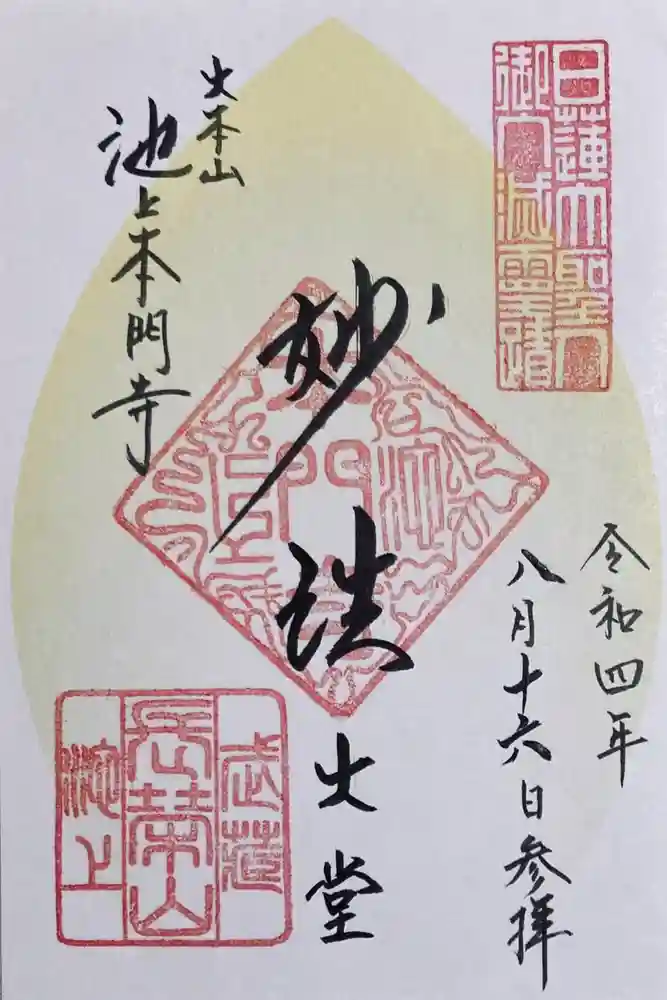 日蓮大聖人
御滅靈蹟
令和四年
八月十六日参拝
妙法
大堂
大本山
池上本門寺
武蔵
長榮山
池上